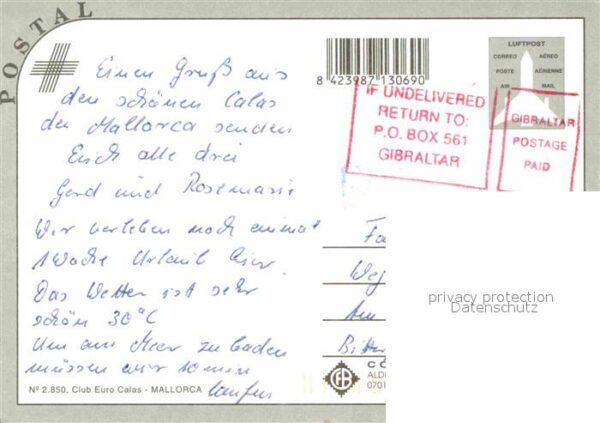 POSTAL
Einen Gruß aus
den schönen Calas
de Mallorca senden
Euch alle drei
Gerd und Rosemarie
Wir verleben noch einmal
1 Woche Urlaub hier.
Das Wetter ist sehr
schön 30°C
Um am Meer zu baden
müssen wir 10 min
laufen
Nº 2.850. Club Euro Calas - MALLORCA
8 423987 130690
LUFTPOST
CORREO AÉREO
POSTE AÉRIENNE
AIR MAIL
IF UNDELIVERED
RETURN TO:
P.O. BOX 561
GIBRALTAR
GIBRALTAR
POSTAGE
PAID
Fa
Weg
Am
Bitter
privacy protection
Datenschutz
CO
ALD
0701